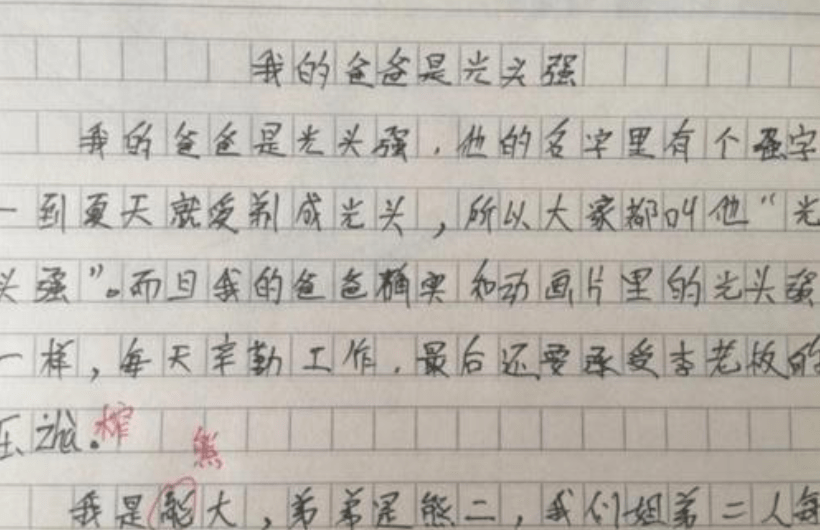 我的爸爸是光头强
我的爸爸是光头强，他的名字里有个强字
一到夏天就爱剃成光头，所以大家都叫他“光
头强”。而且我的爸爸确实和动画片里的光头强
一样，每天辛勤工作，最后还要承受李老板的
压zhà。榨
熊
我是能大，弟弟是熊二，我们姐弟二人每